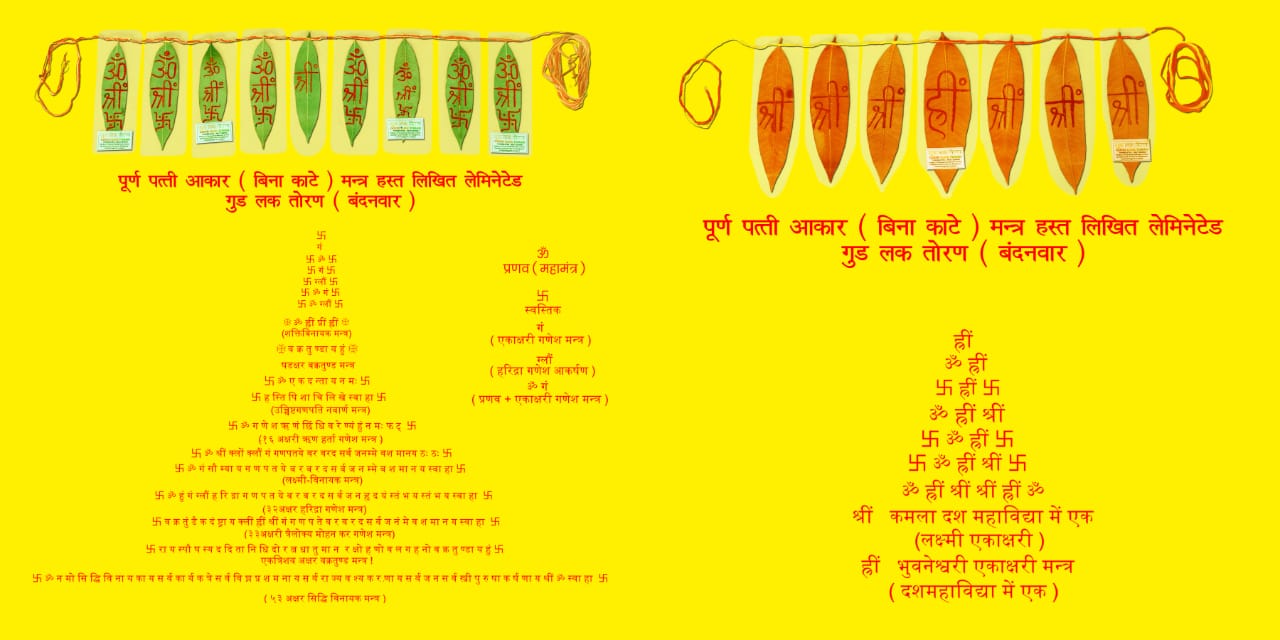 ॐ ॐ ॐ ॐ श्रीं ॐ ॐ ॐ ॐ
श्रीं श्रीं श्रीं श्रीं श्रीं श्रीं श्रीं श्रीं
卐 卐 卐 卐 卐 卐 卐 卐
पूर्ण पत्ती आकार ( बिना काटे ) मन्त्र हस्त लिखित लेमिनेटेड
गुड लक तोरण ( बंदनवार )
卐
गं
卐 ॐ 卐
卐 गं 卐
卐 ग्लौं 卐
卐 ॐ गं 卐
卐 ॐ ग्लौं 卐
ॐ ह्रीं ग्रीं ह्रीं
(शक्तिविनायक मन्त्र)
व क्र तु ण्डा य हुं
षडक्षर वक्रतुण्ड मन्त्र
卐 ॐ ए क द न्ता य न मः 卐
卐 ह स्ति पि शा चि लि खे स्वा हा 卐
(उच्छिष्टगणपति नवार्ण मन्त्र)
卐 ॐ ग णे श ऋ णं छिं धि व रे ण्यं हुं न मः फ ट् 卐
(१६ अक्षरी ऋण हर्ता गणेश मन्त्र )
卐 ॐ श्रीं क्लों क्लौं गं गणपतये वर वरद सर्व जनम्मे वश मानय ठः ठः 卐
卐 ॐ गं सौं स्वा य ग ण प त ये व र व र द स र्व ज न म्मे व श मा न य स्वा हा 卐
(लक्ष्मी-विनायक मन्त्र)
卐 ॐ हुं गं ग्लौं ह रि द्रा ग ण प त ये व र व र द स र्व ज न हृ द यं स्तं भ य स्तं भ य स्वा हा 卐
(३२अक्षर हरिद्रा गणेश मन्त्र)
卐 व क्र तुं डै क दं ष्ट्रा य क्लीं ह्रीं श्रीं गं ग ण प ते व र व र द स र्व ज नं मे व श मा न य स्वा हा 卐
(३३अक्षरी त्रैलोक्य मोहन कर गणेश मन्त्र)
卐 रा य स्पौ ष स्य द दि ता नि धि दो र त्न धा तु मा न र क्षो ह णो व ल ग ह नो व क्र तु ण्डा य हुं 卐
एकत्रिशय अक्षर वक्रतुण्ड मन्त्र !
卐 ॐ न मो सि द्धि वि ना य का य स र्व का र्य क र्त्रे स र्व वि घ्न प्र श म ना य स र्व रा ज्य व श्य क र णा य स र्व ज न स र्व स्त्री पु रु षा क र्ष णा य श्रीं ॐ स्वा हा 卐
( ५३ अक्षर सिद्धि विनायक मन्त्र )
ॐ
प्रणव ( महामंत्र )
卐
स्वस्तिक
गं
( एकाक्षरी गणेश मन्त्र )
ग्लौं
( हरिद्रा गणेश आकर्षण )
ॐ गं
( प्रणव + एकाक्षरी गणेश मन्त्र )
श्रीं श्रीं श्रीं ह्रीं श्रीं श्रीं श्रीं
पूर्ण पत्ती आकार ( बिना काटे ) मन्त्र हस्त लिखित लेमिनेटेड
गुड लक तोरण ( बंदनवार )
ह्रीं
ॐ ह्रीं
卐 ह्रीं 卐
ॐ ह्रीं श्रीं
卐 ॐ ह्रीं 卐
卐 ॐ ह्रीं श्रीं 卐
ॐ ह्रीं श्रीं श्रीं ह्रीं ॐ
श्रीं कमला दश महाविद्या में एक
(लक्ष्मी एकाक्षरी )
ह्रीं भुवनेश्वरी एकाक्षरी मन्त्र
( दशमहाविद्या में एक )